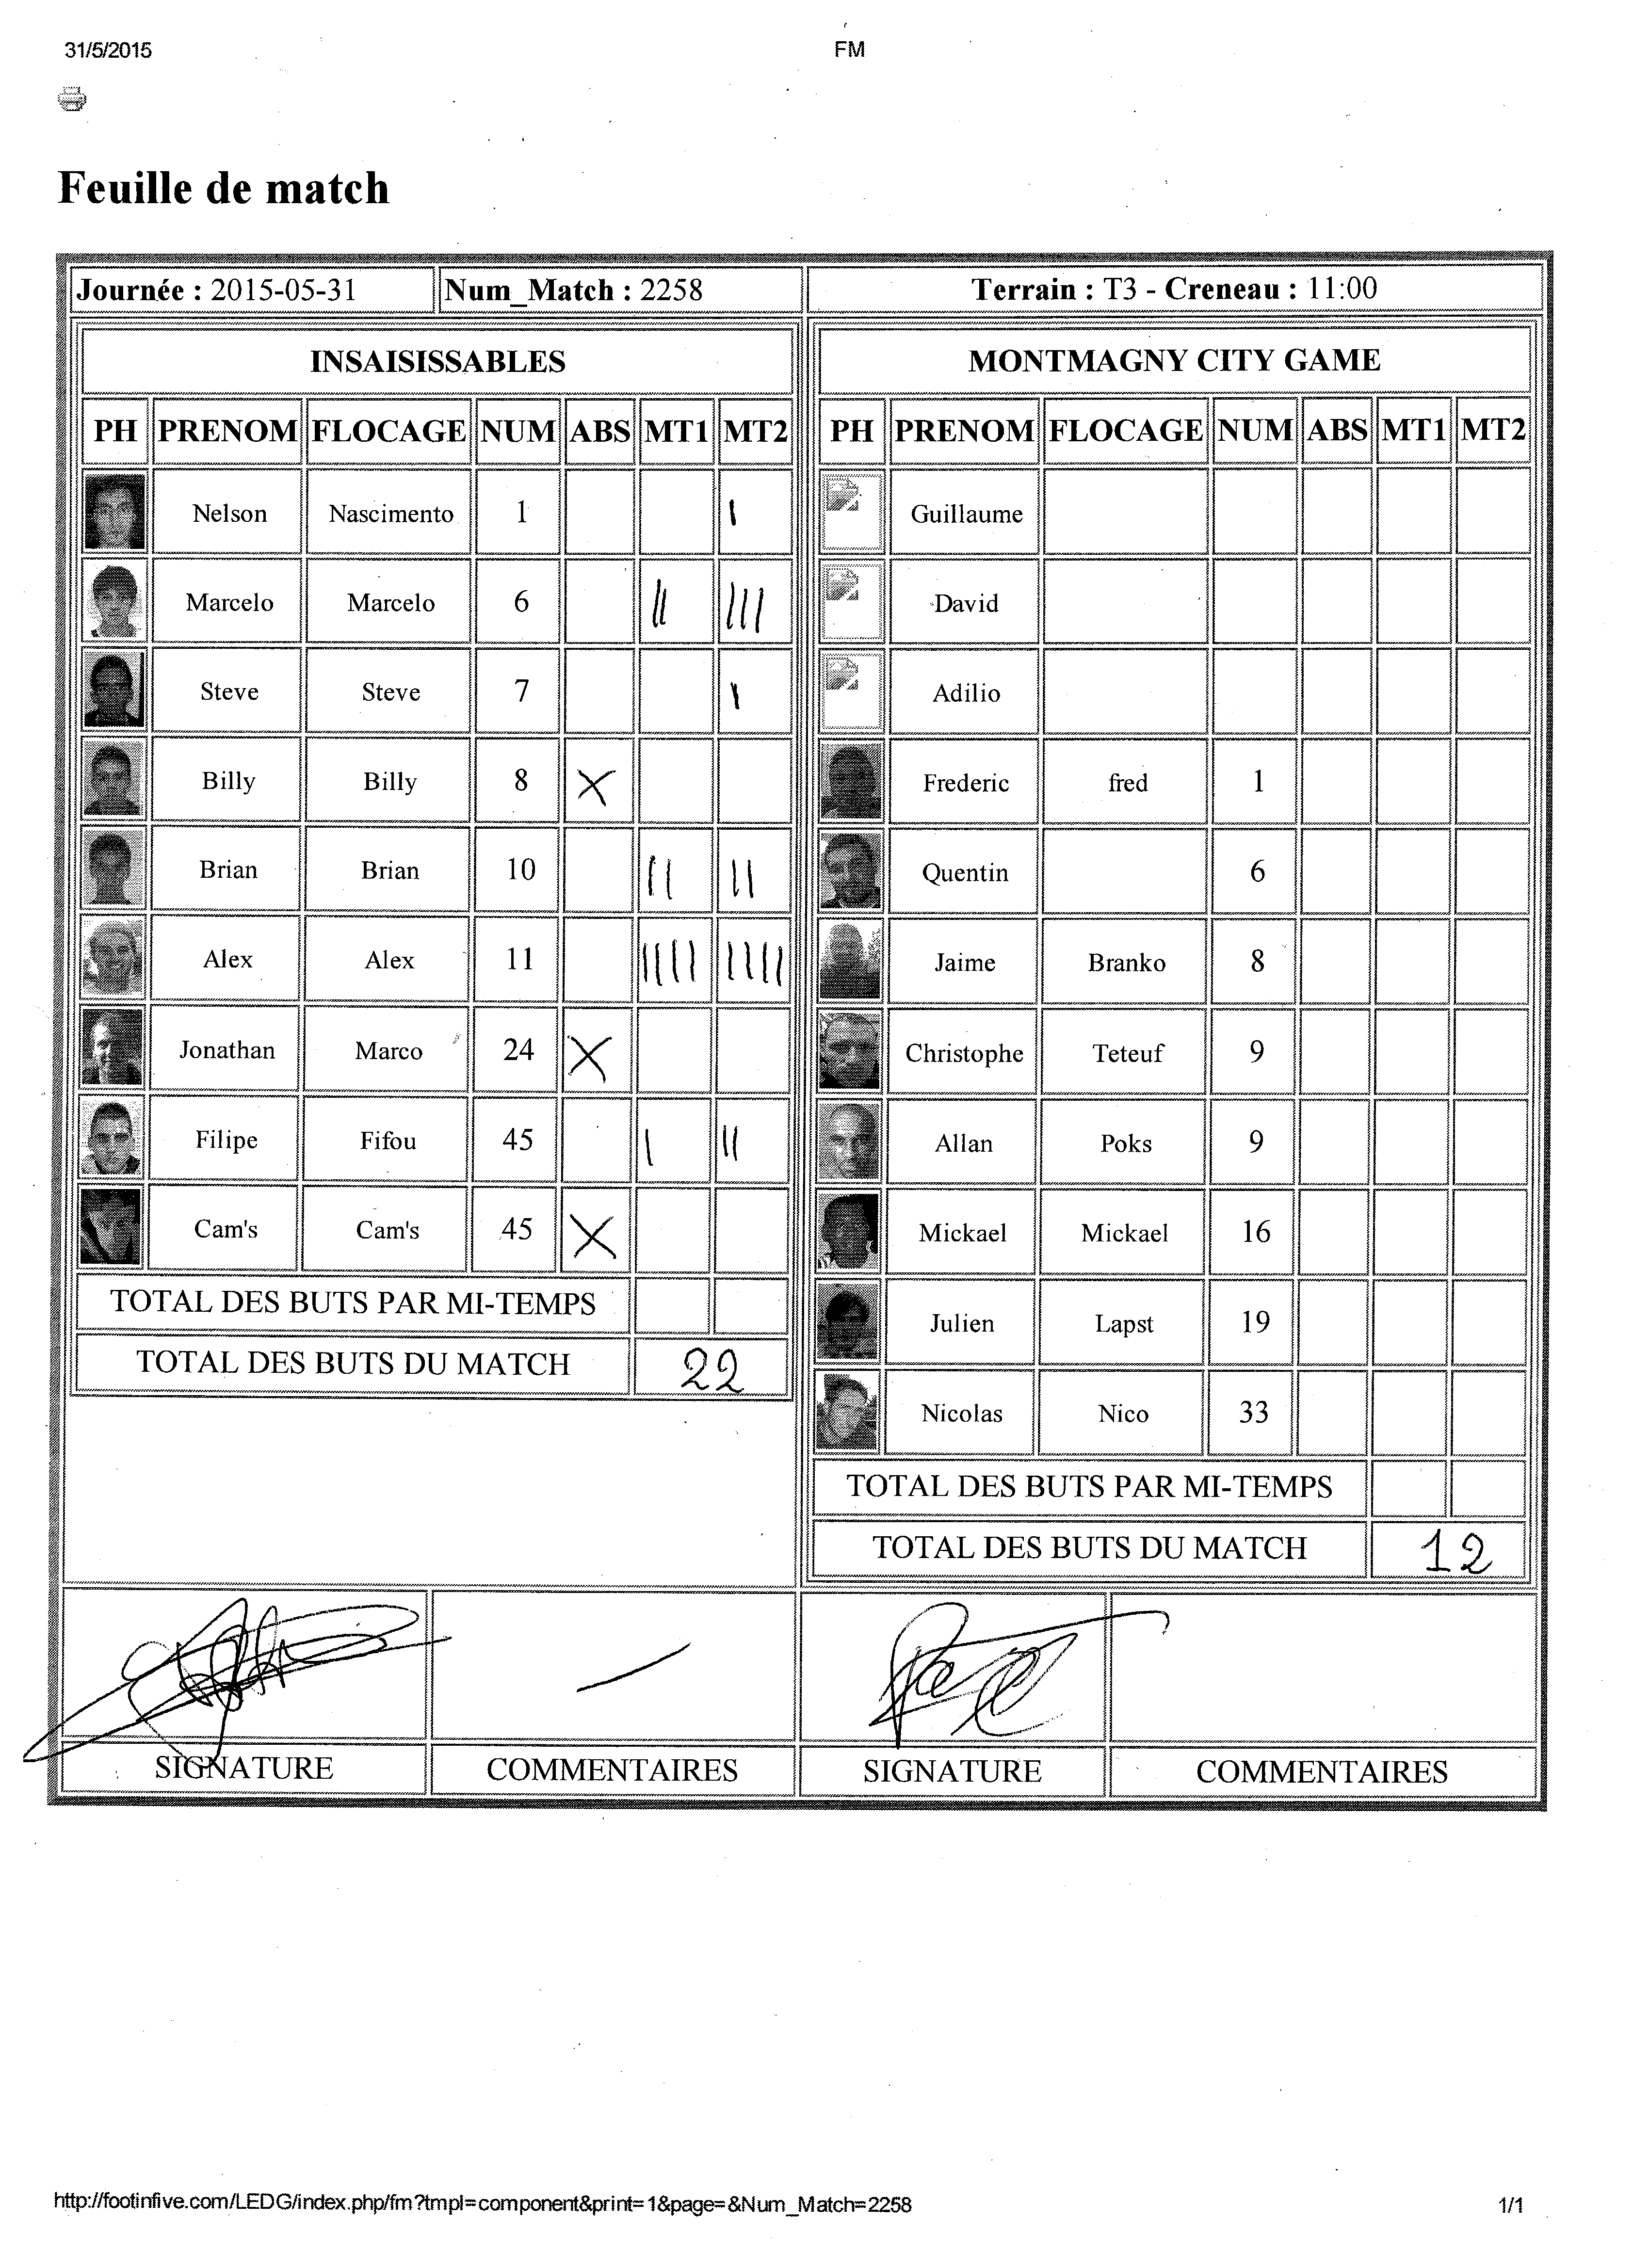 31/5/2015 FM
Feuille de match
Journée : 2015-05-31 Num_Match : 2258 Terrain : T3 - Creneau : 11:00
INSAISISSABLES
PH PRENOM FLOCAGE NUM ABS MT1 MT2
Nelson Nascimento 1 |
Marcelo Marcelo 6 || |||
Steve Steve 7 |
Billy Billy 8 X
Brian Brian 10 || ||
Alex Alex 11 |||| ||||
Jonathan Marco 24 X
Filipe Fifou 45 | ||
Cam's Cam's 45 X
TOTAL DES BUTS PAR MI-TEMPS
TOTAL DES BUTS DU MATCH 22
MONTMAGNY CITY GAME
PH PRENOM FLOCAGE NUM ABS MT1 MT2
Guillaume
David
Adilio
Frederic fred 1
Quentin 6
Jaime Branko 8
Christophe Teteuf 9
Allan Poks 9
Mickael Mickael 16
Julien Lapst 19
Nicolas Nico 33
TOTAL DES BUTS PAR MI-TEMPS
TOTAL DES BUTS DU MATCH 12
SIGNATURE COMMENTAIRES SIGNATURE COMMENTAIRES
http://footinfive.com/LEDG/index.php/fm?tmpl=component&print=1&page=&Num_Match=2258 1/1